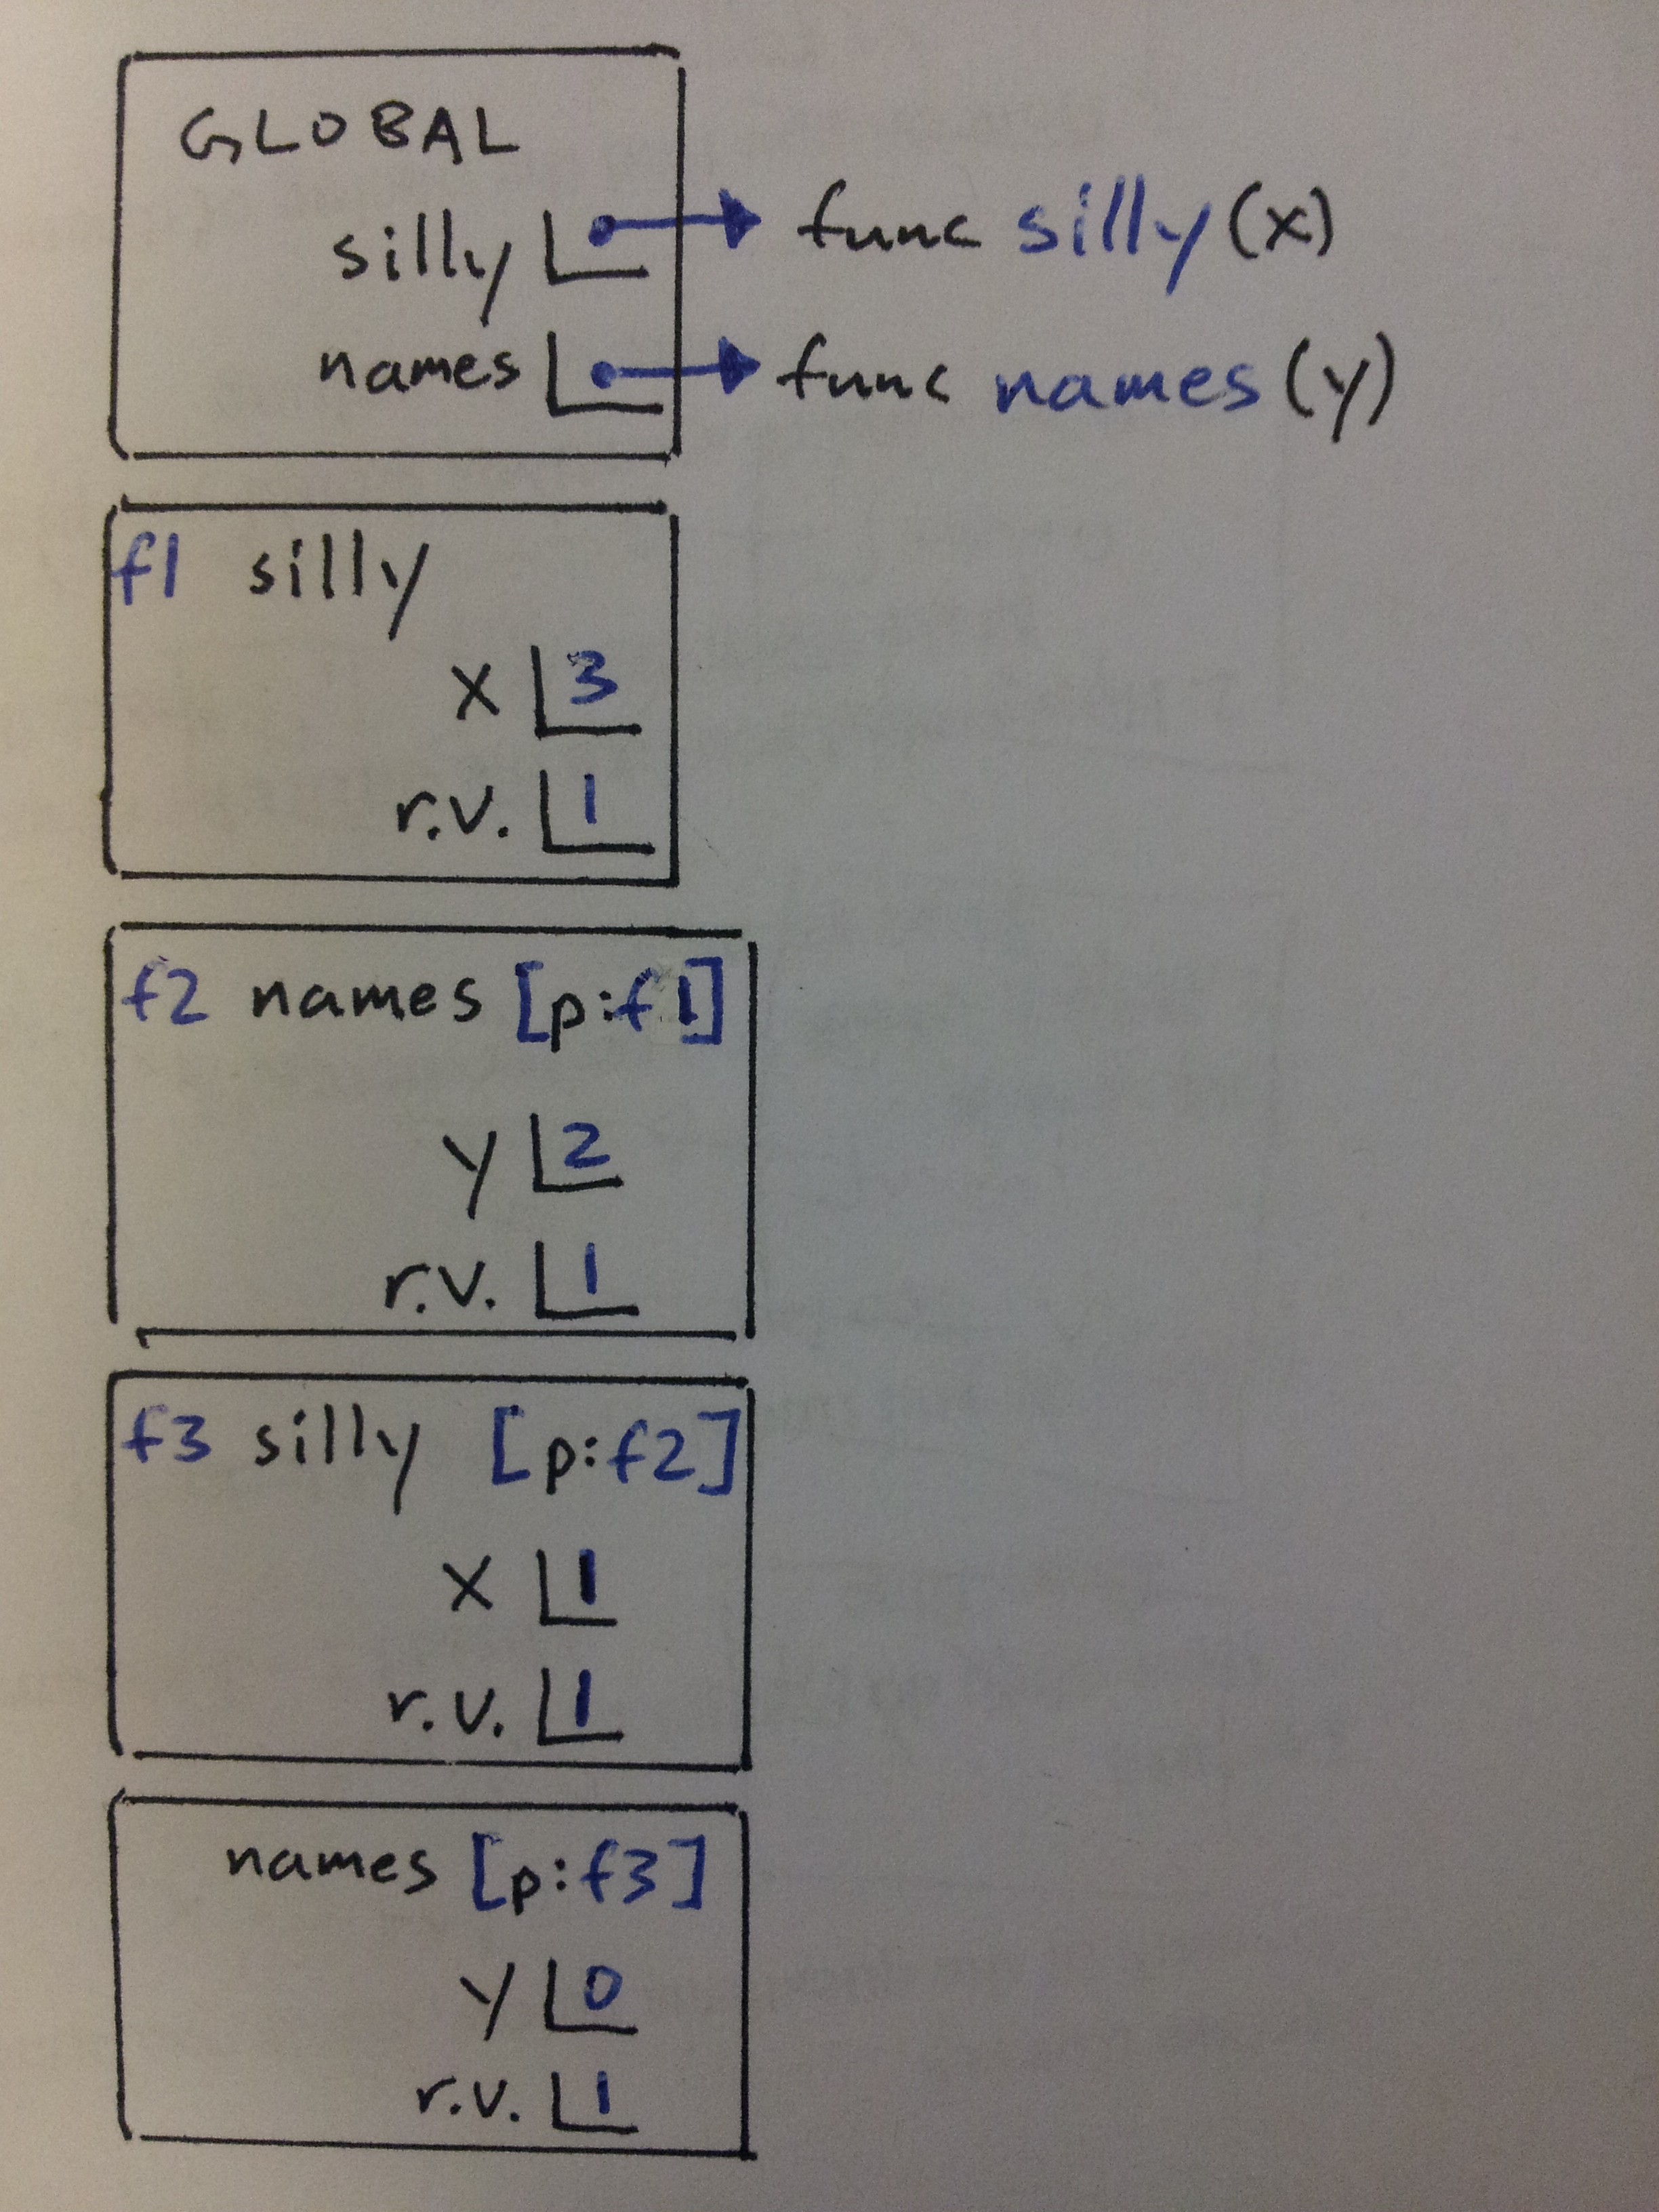 GLOBAL
silly func silly(x)
names func names(y)
f1 silly
x 3
r.v. 1
f2 names [p:f1]
y 2
r.v. 1
f3 silly [p:f2]
x 1
r.v. 1
names [p:f3]
y 0
r.v. 1